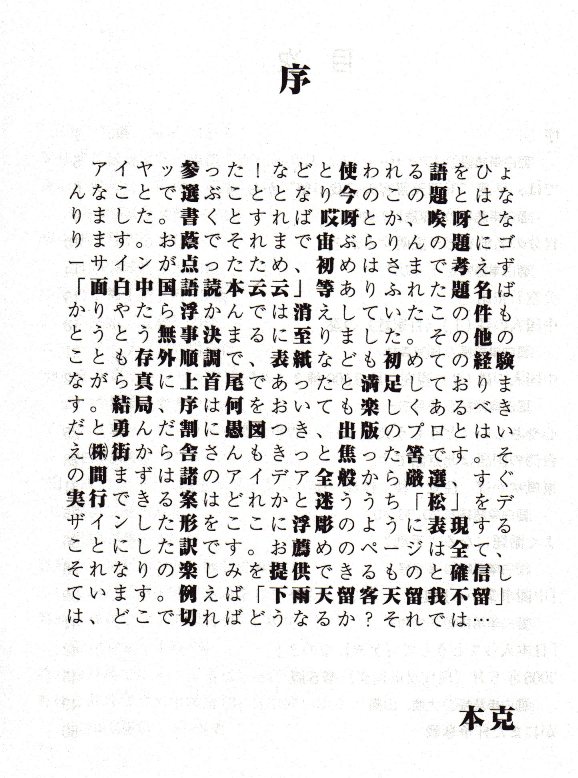 序
アイヤッ参った！などと使われる語をひょ
んなことで選ぶこととなり今のこの題はとな
りました。書くとすれば哎呀とか、唉呀とな
ります。お国が蔭でそれまで宙ぶらんの題にゴ
ーサインが点ったため、初めはまで考えず
「面白中国語読本云云」等ありふれた題名ば
かりやたら浮かんでは消えていたこの件も
とうとう無事決まるに至りました。その他の
ことも存外順調で、表紙なども初めての経験
ながら真に上首尾であったと満足しておりま
す。結局、序は何をおいても楽しくあるべき
だと勇んだ割に愚図つき、出版のプロとはい
え㈱街から舎さんもきっと焦った筈です。そ
の間まず諸んのアイデア全般から厳選、すぐ
実行できる案はどれかと迷ううちに「松」をデ
ザインした形をここに浮彫のように表現する
ことにした訳です。お薦めのページは全て、
それなりの楽しみを提供できるものと確信し
ています。例えば「下雨天留客天留我不留」
は、どこで切ればどうなるか？それでは…
本克